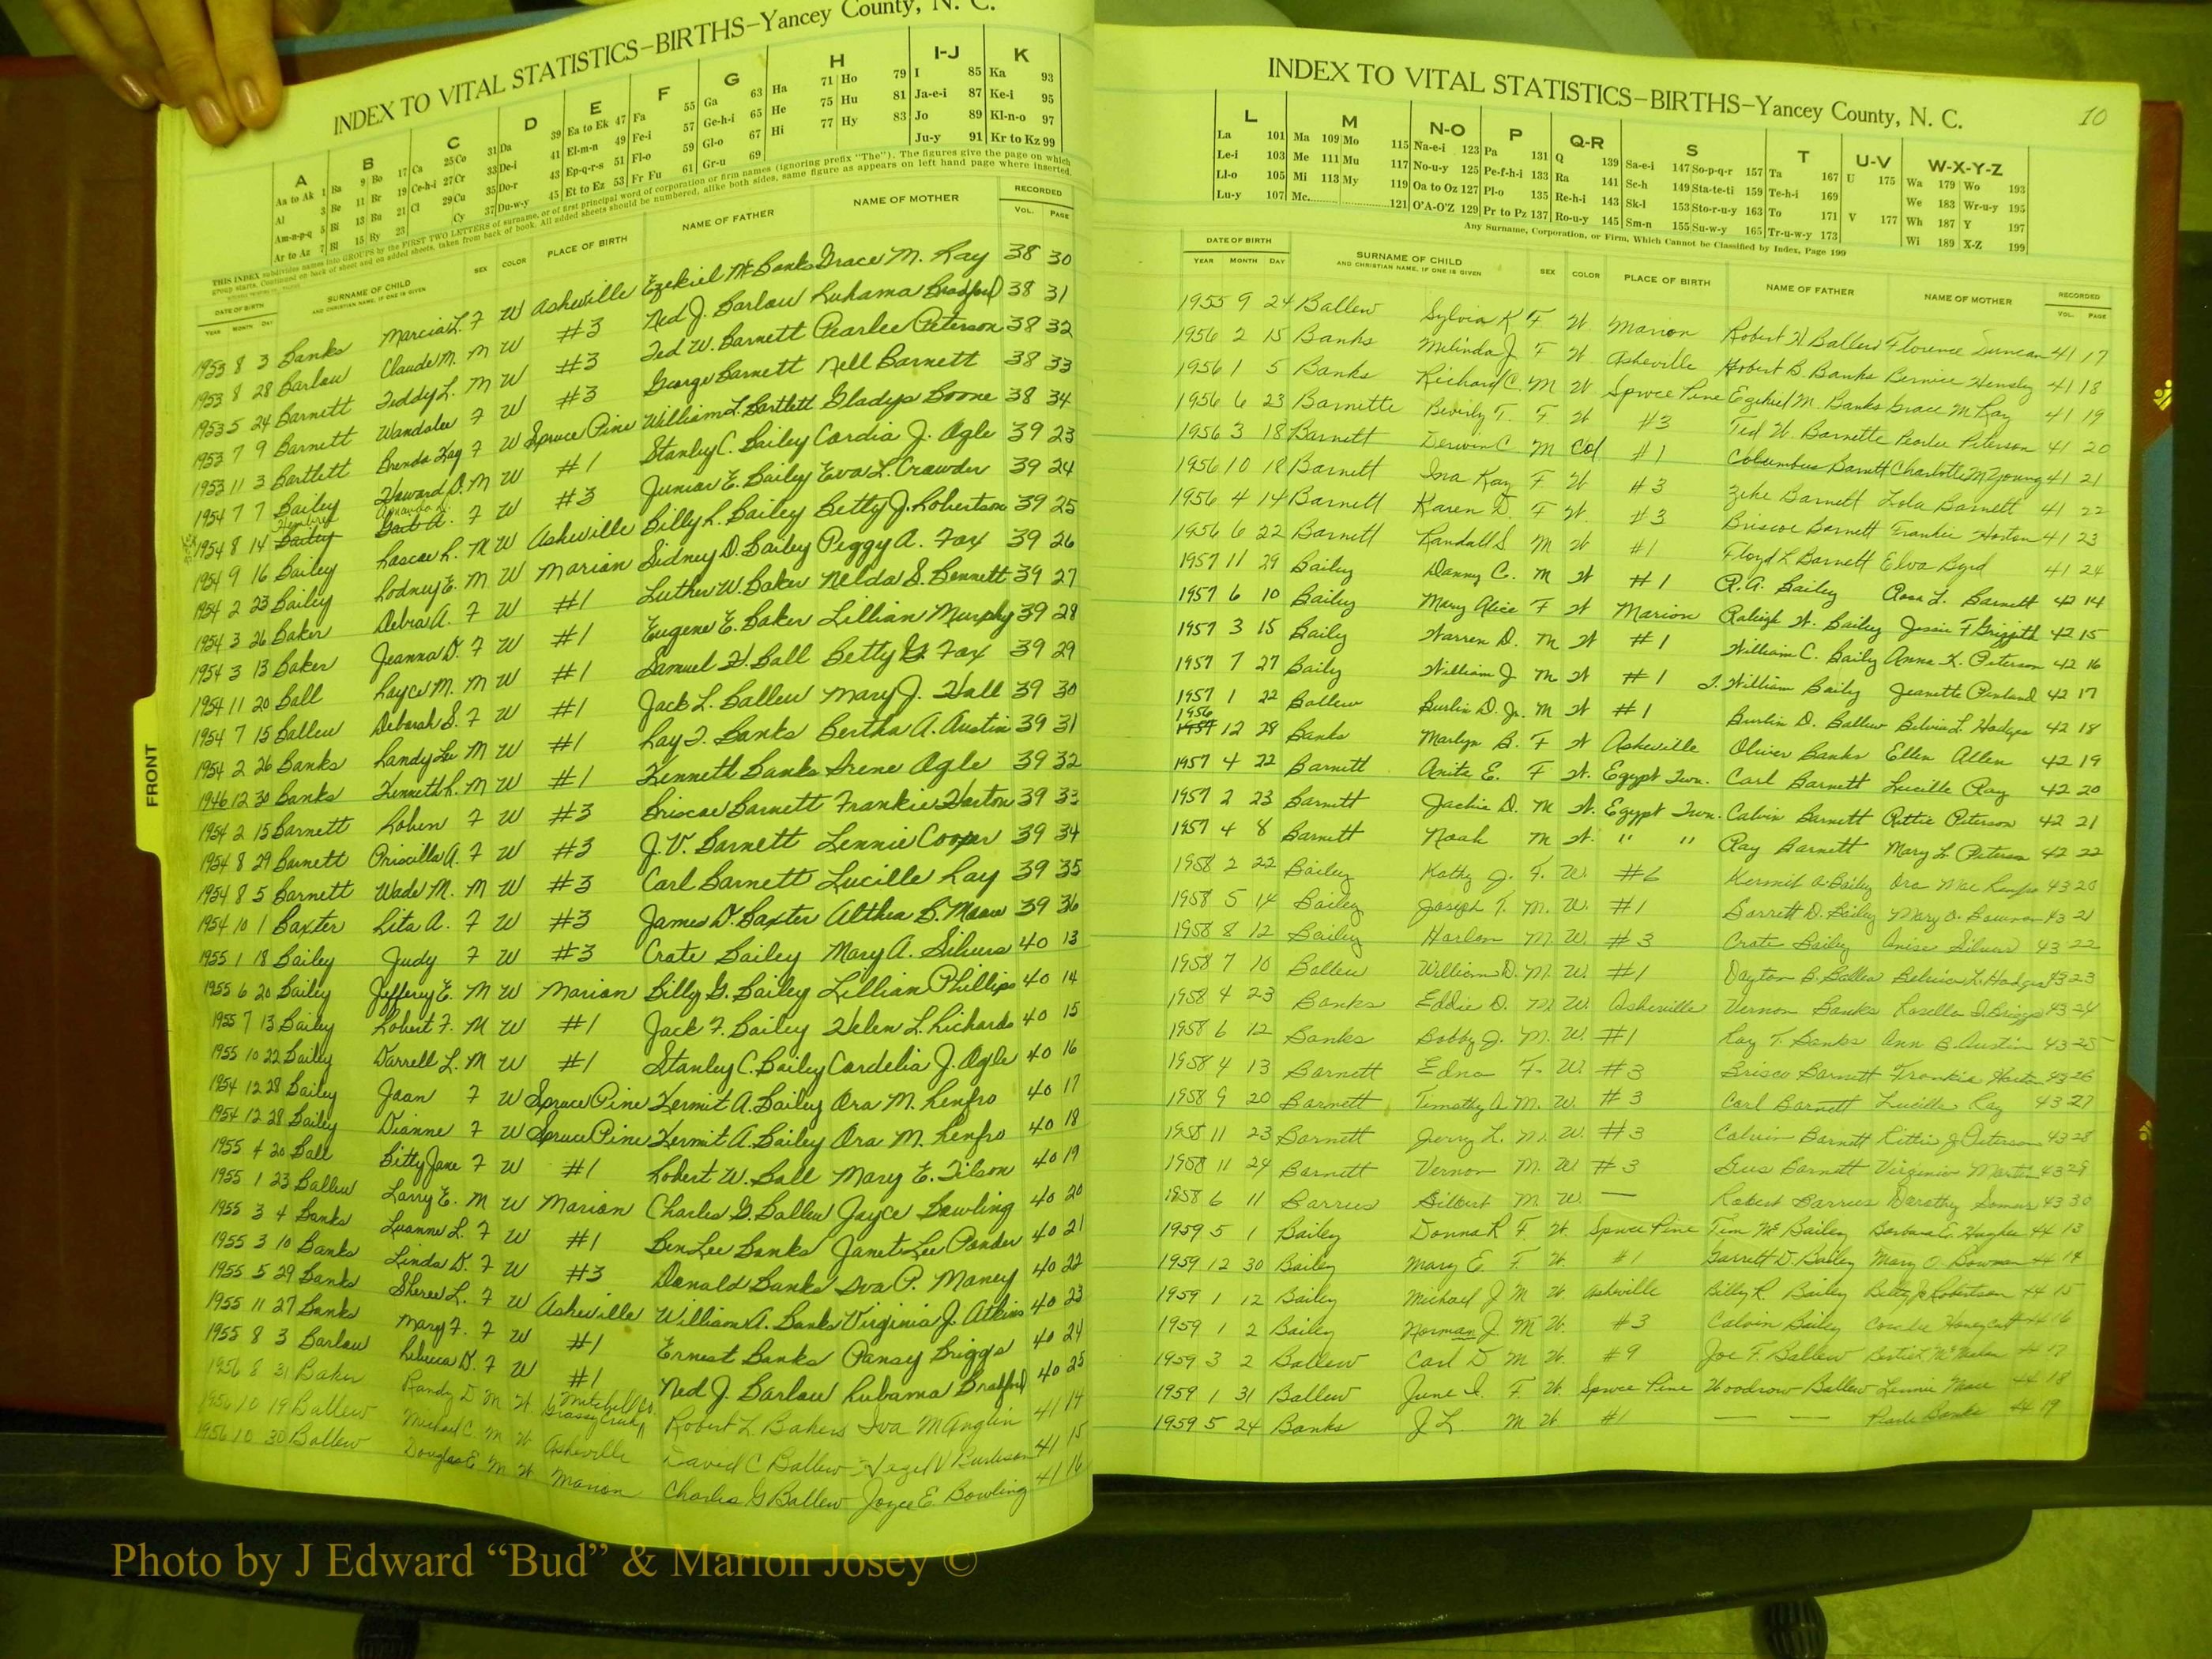 INDEX TO VITAL STATISTICS–BIRTHS–Yancey County, N. C.
A B C D E F G H I-J K
Aa to Ak 1 Ba 9 Bo 17 Ca 25 Co 31 Da 39 Ea to Ek 47 Fa 55 Ga 63 Ha 71 Ho 79 I 85 Ka 93
Al 3 Be 11 Br 19 Ce-h-i 27 Cr 33 De-i 41 El-m-n 49 Fe-i 57 Ge-h-i 65 He 75 Hu 81 Ja-e-i 87 Ke-i 95
Am-n-p-q 5 Bi 13 Bu 21 Cl 29 Cu 35 Do-r 43 Ep-q-r-s 51 Fl-o 59 Gl-o 67 Hi 77 Hy 83 Jo 89 Kl-n-o 97
Ar to Az 7 Bl 15 By 23 Cy 37 Du-w-y 45 Et to Ez 53 Fr Fu 61 Gr-u 69 Ju-y 91 Kr to Kz 99
THIS INDEX subdivides names into GROUPS by the FIRST TWO LETTERS of surname, or of first principal word of corporation or firm names (ignoring prefix "The"). The figures give the page on which
group starts. Continued on back of sheet and on added sheets, taken from back of book. All added sheets should be numbered, alike both sides, same figure as appears on left hand page where inserted.
DATE OF BIRTH SURNAME OF CHILD SEX COLOR PLACE OF BIRTH NAME OF FATHER NAME OF MOTHER RECORDED
YEAR MONTH DAY AND CHRISTIAN NAME, IF ONE IS GIVEN VOL. PAGE
1953 8 3 Banks Marcia L. F W Asheville Ezekiel Mc Banks Grace M. Ray 38 30
1953 8 28 Barlow Claude M. M W #3 Ned J. Barlow Luhama Bradford 38 31
1953 5 24 Barnett Teddy L. M W #3 Ted W. Barnett Pearlee Peterson 38 32
1953 7 9 Barnett Wandalee F W #3 George Barnett Nell Barnett 38 33
1953 11 3 Bartlett Brenda Kay F W Spruce Pine William L. Bartlett Gladys Boone 38 34
1954 7 7 Bailey Howard D. M W #1 Stanley C. Bailey Cordia J. Ogle 39 23
1954 8 14 Bailey Gail A. F W #3 Junior E. Bailey Eva L. Crowder 39 24
1954 9 16 Bailey Roscoe R. M W Asheville Billy R. Bailey Betty J. Robertson 39 25
1954 2 23 Bailey Rodney E. M W Marion Sidney D. Bailey Peggy A. Fox 39 26
1954 3 26 Baker Debra A. F W #1 Luther W. Baker Nelda S. Bennett 39 27
1954 3 13 Baker Jeanna D. F W #1 Eugene E. Baker Lillian Murphy 39 28
1954 11 20 Ball Royce M. M W #1 Samuel H. Ball Betty G. Fox 39 29
1954 7 15 Ballew Deborah S. F W #1 Jack L. Ballew Mary J. Hall 39 30
1954 2 26 Banks Randy Lee M W #1 Ray T. Banks Bertha A. Austin 39 31
1946 12 30 Banks Kenneth R. M W #1 Kenneth Banks Irene Ogle 39 32
1954 2 15 Barnett Roben F W #3 Briscoe Barnett Frankie Horton 39 33
1954 8 29 Barnett Priscilla A. F W #3 J.V. Barnett Lennie Cooper 39 34
1954 8 5 Barnett Wade M. M W #3 Carl Barnett Lucille Ray 39 35
1954 10 1 Baxter Rita A. F W #3 James D. Baxter Althea B. 39 36
1955 1 18 Bailey Judy F W #3 Crate Bailey Mary A. Silvers 40 13
1955 6 20 Bailey Jefferey E. M W Marion Billy G. Bailey Lillian Phillips 40 14
1955 7 13 Bailey Robert F. M W #1 Jack F. Bailey Helen L. Richards 40 15
1955 10 22 Bailey Darrell L. M W #1 Stanley C. Bailey Cordelia J. Ogle 40 16
1954 12 28 Bailey Joan F W Spruce Pine Kermit A. Bailey Ora M. Renfro 40 17
1954 12 28 Bailey Dianne F W Spruce Pine Kermit A. Bailey Ora M. Renfro 40 18
1955 4 20 Ball Bitty Jane F W #1 Robert W. Ball Mary E. Tilson 40 19
1955 1 23 Ballew Larry E. M W Marion Charles G. Ballew Joyce Bowling 40 20
1955 3 4 Banks Luanne L. F W #1 Ben Lee Banks Janet Lee Ponder 40 21
1955 3 10 Banks Linda D. F W #3 Donald Banks Iva P. Maney 40 22
1955 5 29 Banks Sheree L. F W Asheville William A. Banks Virginia J. Atkins 40 23
1955 11 27 Banks Mary F. F W #1 Ernest Banks Pansy Briggs 40 24
1955 8 3 Barlow Rebecca D. F W #1 Ned J. Barlow Luhama Bradford 40 25
1956 8 31 Baker Randy D M W Mitchell Co. Grassy Creek Robert L. Bakers Iva M Anglin 41 14
1956 10 19 Ballew Michael C. M W Asheville David C Ballew Hazel V Burleson 41 15
1956 10 30 Ballew Douglas E. M W Marion Charles G Ballew Joyce E Bowling 41 16
FRONT
INDEX TO VITAL STATISTICS–BIRTHS–Yancey County, N. C. 10
L M N-O P Q-R S T U-V W-X-Y-Z
La 101 Ma 109 Mo 115 Na-e-i 123 Pa 131 Q 139 Sa-e-i 147 So-p-q-r 157 Ta 167 U 175 Wa 179 Wo 193
Le-i 103 Me 111 Mu 117 No-u-y 125 Pe-f-h-i 133 Ra 141 Sc-h 149 Sta-te-ti 159 Te-h-i 169 We 183 Wr-u-y 195
Ll-o 105 Mi 113 My 119 Oa to Oz 127 Pl-o 135 Re-h-i 143 Sk-l 153 Sto-r-u-y 163 To 171 V 177 Wh 187 Y 197
Lu-y 107 Mc 121 O'A-O'Z 129 Pr to Pz 137 Ro-u-y 145 Sm-n 155 Su-w-y 165 Tr-u-w-y 173 Wi 189 X-Z 199
Any Surname, Corporation, or Firm, Which Cannot be Classified by Index, Page 199
DATE OF BIRTH SURNAME OF CHILD SEX COLOR PLACE OF BIRTH NAME OF FATHER NAME OF MOTHER RECORDED
YEAR MONTH DAY AND CHRISTIAN NAME, IF ONE IS GIVEN VOL. PAGE
1955 9 24 Ballew Sylvia K F W Marion Robert H Ballew Florence Duncan 41 17
1956 2 15 Banks Milinda J. F W Asheville Robert B. Banks Bernice Hensley 41 18
1956 1 5 Banks Richard C. M W Spruce Pine Ezekiel M. Banks Grace M Ray 41 19
1956 6 23 Barnette Beverly T. F W #3 Ted W. Barnette Pearlee Peterson 41 20
1956 3 18 Barnett Derwin C M Col #1 Columbus Barnett Charlotte M Young 41 21
1956 10 18 Barnett Ina Kay F W #3 Zeke Barnett Lola Barnett 41 22
1956 4 14 Barnett Karen D. F W. #3 Briscoe Barnett Frankie Horton 41 23
1956 6 22 Barnett Randall S M W #1 Floyd L Barnett Elva Byrd 41 24
1957 11 29 Bailey Danny C. M W #1 R.A. Bailey Rosa L. Barnett 42 14
1957 6 10 Bailey Mary Alice F W Marion Raleigh W. Bailey Jessie F Griffith 42 15
1957 3 15 Baily Warren D. M W #1 William C. Baily Anna K. Peterson 42 16
1957 7 27 Baily William J M W #1 J. William Baily Jeanette Penland 42 17
1957 1 22 Ballew Burlin D. Jr. M W #1 Burlin D. Ballew Belvia L. Hodges 42 18
1956 1957 12 28 Banks Marlyn B. F W Asheville Oliver Banks Ellen Allen 42 19
1957 4 22 Barnett Anita E. F W. Egypt Twn. Carl Barnett Lucille Ray 42 20
1957 2 23 Barnett Jackie D. M W. Egypt Twn. Calvin Barnett Rittie Peterson 42 21
1957 4 8 Barnett Noah M W. " " Ray Barnett Mary L. Peterson 42 22
1958 2 22 Bailey Kathy J. F. W. #6 Kermit A. Bailey Ora Mae Renfro 43 20
1958 5 14 Bailey Joseph T. M. W. #1 Garrett D. Bailey Mary O. Bowman 43 21
1958 8 12 Bailey Harlon M. W. #3 Crate Bailey Anise Silver 43 22
1958 7 10 Ballew William D. M. W. #1 Dayton B. Ballew Belvia L. Hodges 43 23
1958 4 23 Banks Eddie D. M. W. Asheville Vernon Banks Rosella D. Briggs 43 24
1958 6 12 Banks Bobby J. M. W. #1 Ray T. Banks Ann B. Austin 43 25
1958 4 13 Barnett Edna F. W. #3 Brisco Barnett Frankie Horton 43 26
1958 9 20 Barnett Timothy A. M. W. #3 Carl Barnett Lucille Ray 43 27
1958 11 23 Barnett Jerry L. M. W. #3 Calvin Barnett Rittie J Peterson 43 28
1958 11 24 Barnett Vernon M. W #3 Gus Barnett Virginia Martin 43 29
1958 6 11 Barrus Gilbert M. W. — Robert Barrus Dorothy Somers 43 30
1959 5 1 Bailey Donna R F. W. Spruce Pine Tim Mc Bailey Barbara E. Hughes 44 13
1959 12 30 Bailey Mary E. F. W. #1 Garrett D. Bailey Mary O. Bowman 44 14
1959 1 12 Bailey Michael J M W. Asheville Billy R. Bailey Betty Jo Robertson 44 15
1959 1 2 Bailey Norman J. M W. #3 Calvin Bailey Honeycutt 44 16
1959 3 2 Ballew Carl D M W. #9 Joe F. Ballew 44 17
1959 1 31 Ballew June I. F. W. Spruce Pine Woodrow Ballew Linnie Mace 44 18
1959 5 24 Banks J L. M W. #1 — — Pearle Banks 44 19
Photo by J Edward “Bud” & Marion Josey ©